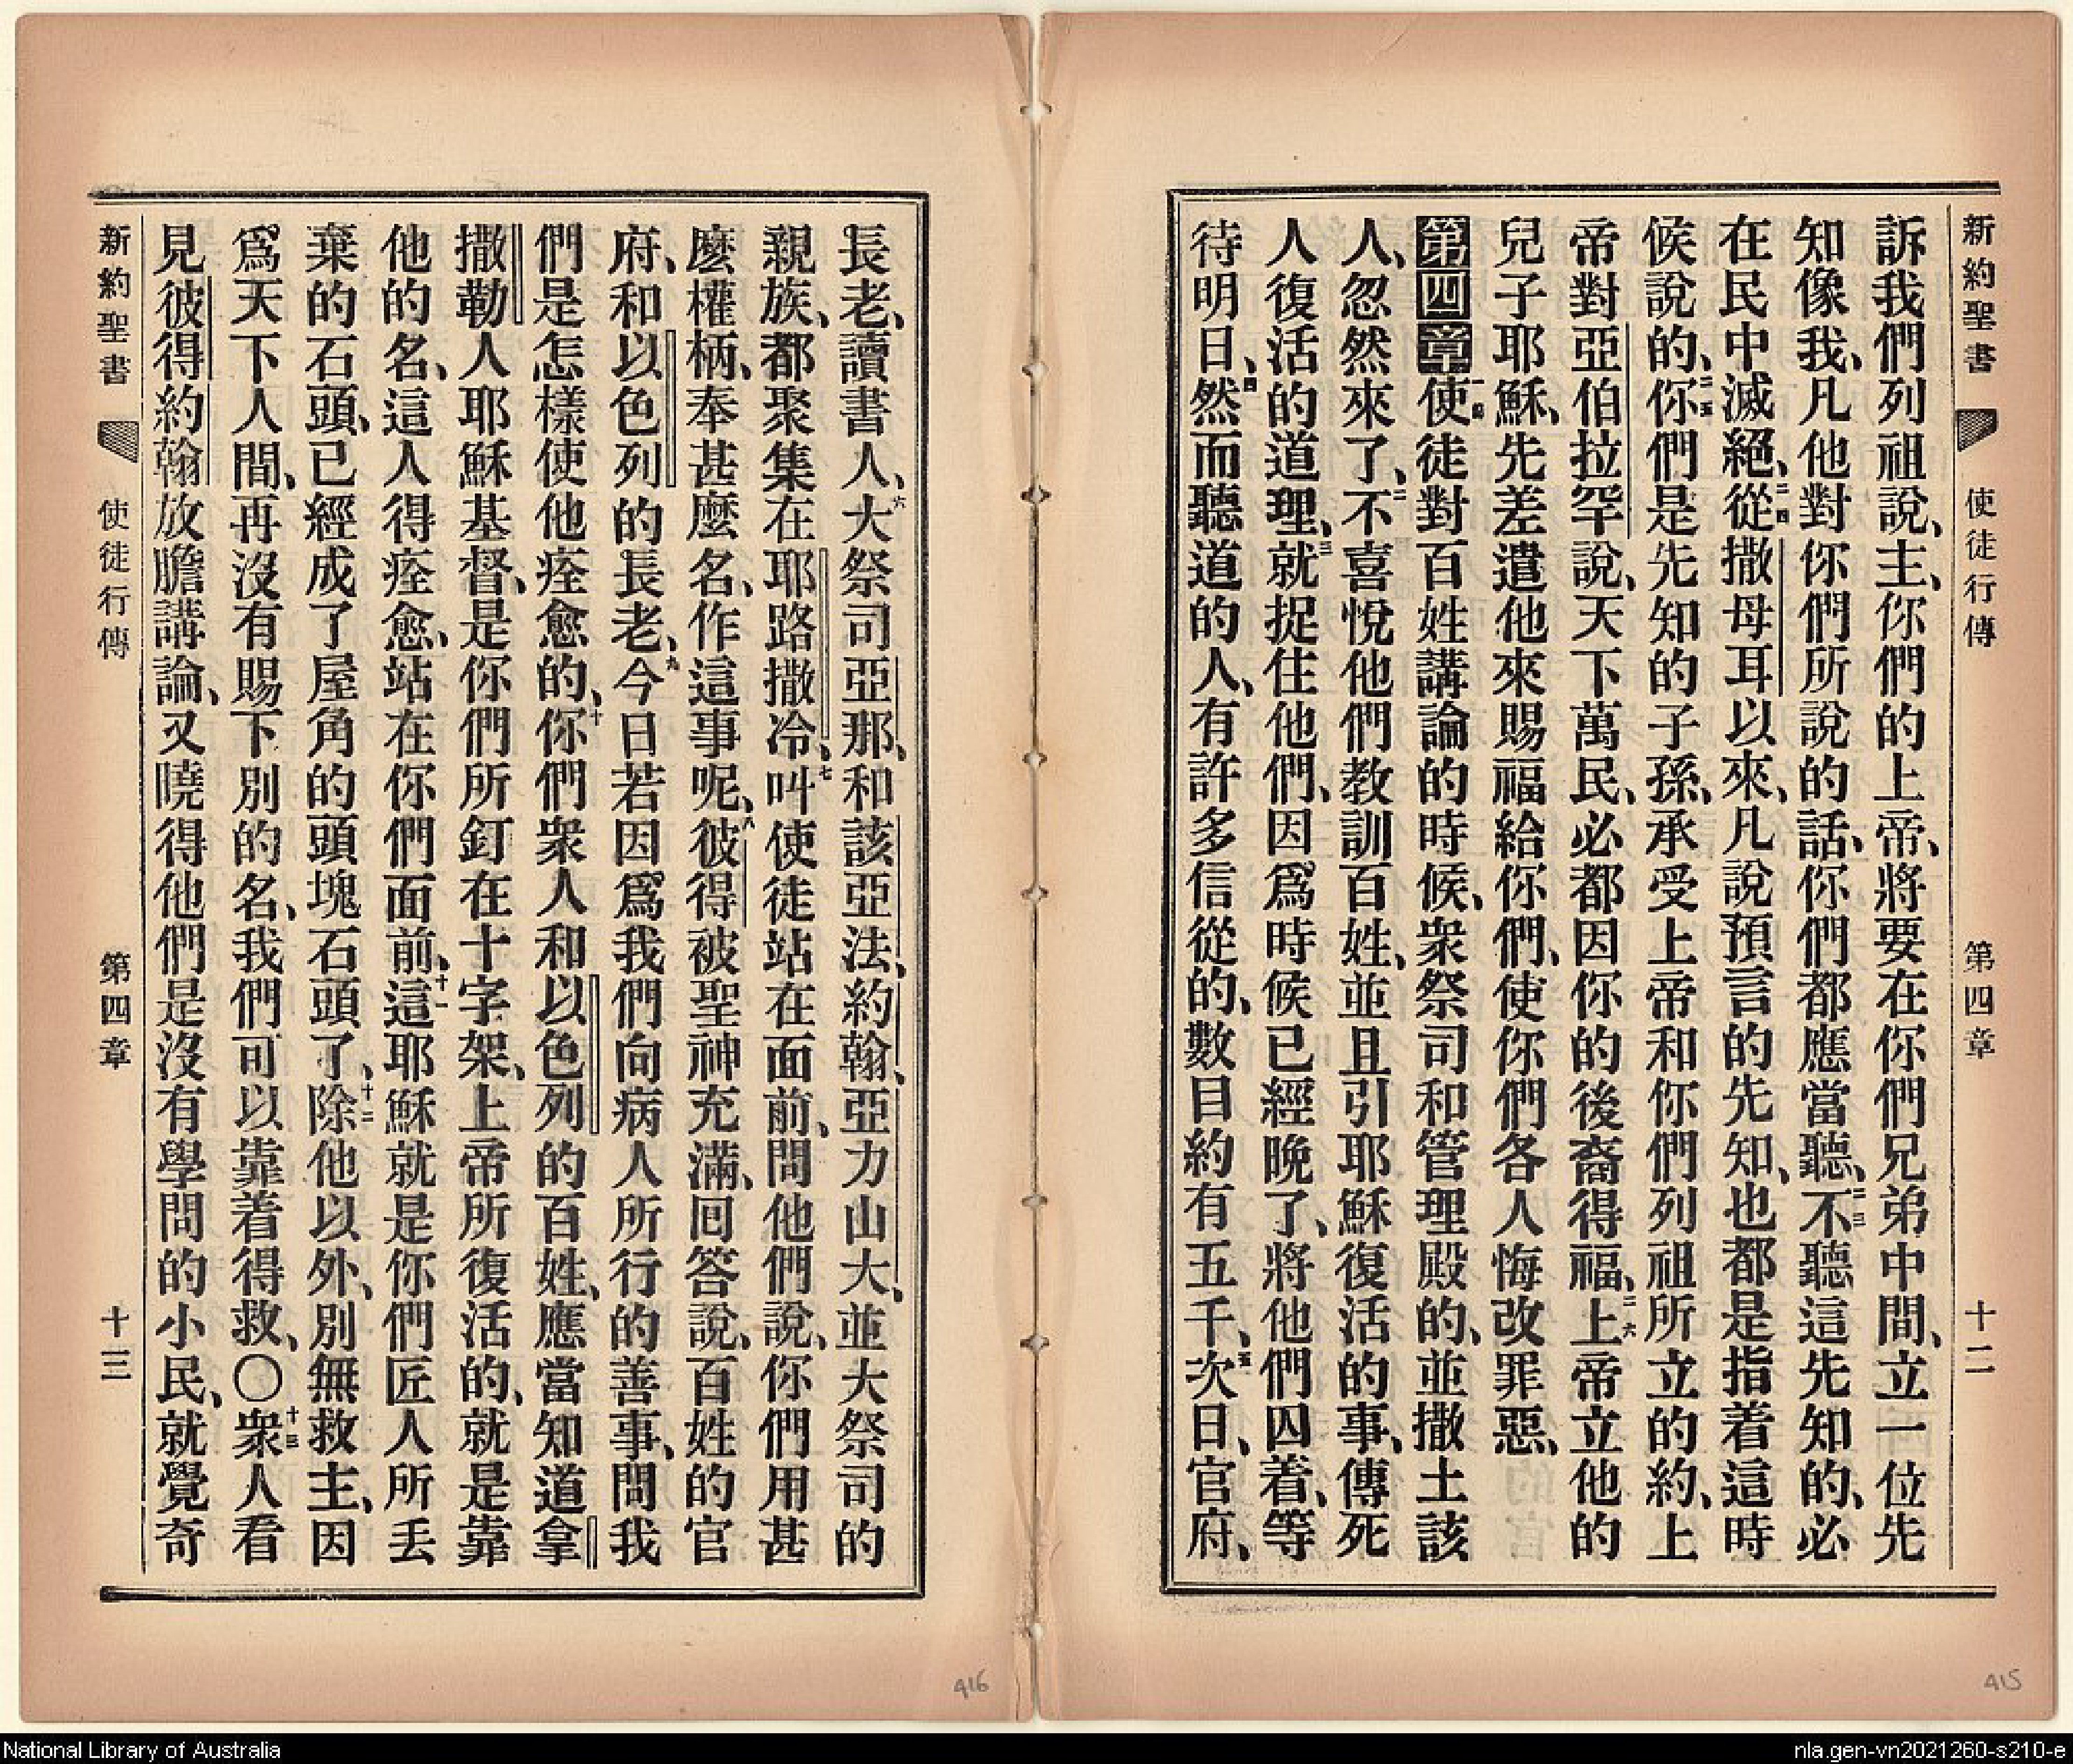 新約聖書 使徒行傳 第四章 十二
訴我們列祖說、主、你們的上帝、將要在你們兄弟中間、立一位先
知像我、凡他對你們所說的話、你們都應當聽、二三不聽這先知的、必
在民中滅絕、二四從撒母耳以來、凡說預言的先知、也都是指着這時
候說的、二五你們是先知的子孫、承受上帝和你們列祖所立的約、上
帝對亞伯拉罕說、天下萬民、必都因你的後裔得福、二六上帝立他的
兒子耶穌、先差遣他來賜福給你們、使你們各人悔改罪惡、
第四章一使徒對百姓講論的時候、衆祭司和管理殿的、並撒土該
人、忽然來了、二不喜悅他們教訓百姓、並且引耶穌復活的事、傳死
人復活的道理、三就捉住他們、因爲時候已經晚了、將他們囚着、等
待明日、四然而聽道的人、有許多信從的、數目約有五千、五次日、官府、
長老、讀書人、六大祭司亞那、和該亞法、約翰、亞力山大、並大祭司的
親族、都聚集在耶路撒冷、七叫使徒站在面前、問他們說、你們用甚
麼權柄、奉甚麼名、作這事呢、八彼得被聖神充滿、回答說、百姓的官
府、和以色列的長老、九今日若因爲我們向病人所行的善事、問我
們是怎樣使他痊愈的、十你們衆人和以色列的百姓、應當知道拿
撒勒人耶穌基督、是你們所釘在十字架、上帝所復活的、就是靠
他的名、這人得痊愈、站在你們面前、十一這耶穌就是你們匠人所丟
棄的石頭、已經成了屋角的頭塊石頭了、十二除他以外、別無救主、因
爲天下人間、再沒有賜下別的名、我們可以靠着得救、〇十三衆人看
見彼得約翰放膽講論、又曉得他們是沒有學問的小民、就覺奇
新約聖書 使徒行傳 第四章 十三
416
415
National Library of Australia
nla.gen-vn2021260-s210-e